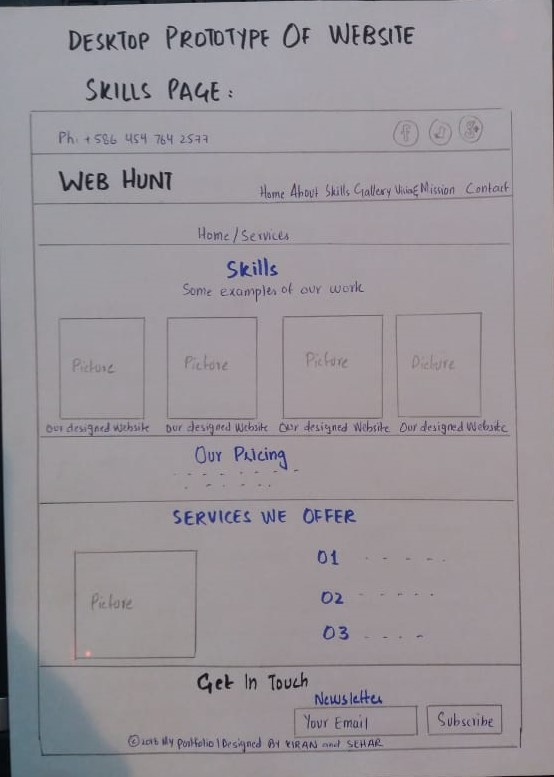 DESKTOP PROTOTYPE OF WEBSITE
SKILLS PAGE:
Ph: +586 454 764 2577
f
WEB HUNT
Home About Skills Gallery Vision& Mission Contact
Home/Services
Skills
Some examples of our work
Picture Picture Picture Picture
Our designed Website Our designed Website Our designed Website Our designed Website
Our Pricing
SERVICES WE OFFER
Picture
01
02
03
Get In Touch
Newsletter
Your Email Subscribe
©2016 My Portfolio | Designed BY KIRAN and SEHAR